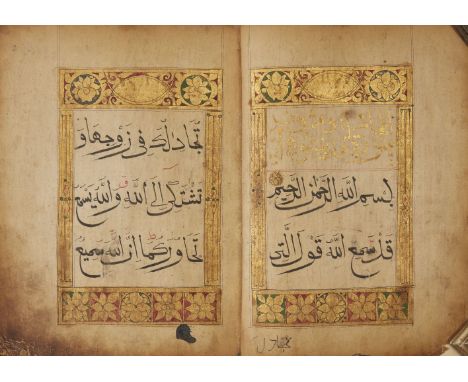 بسم الله الرحمن الرحيم
قد سمع الله قول التي
تجادلك في زوجها و
تشتكي الى الله والله يسمع
تحاوركما ان الله سميع